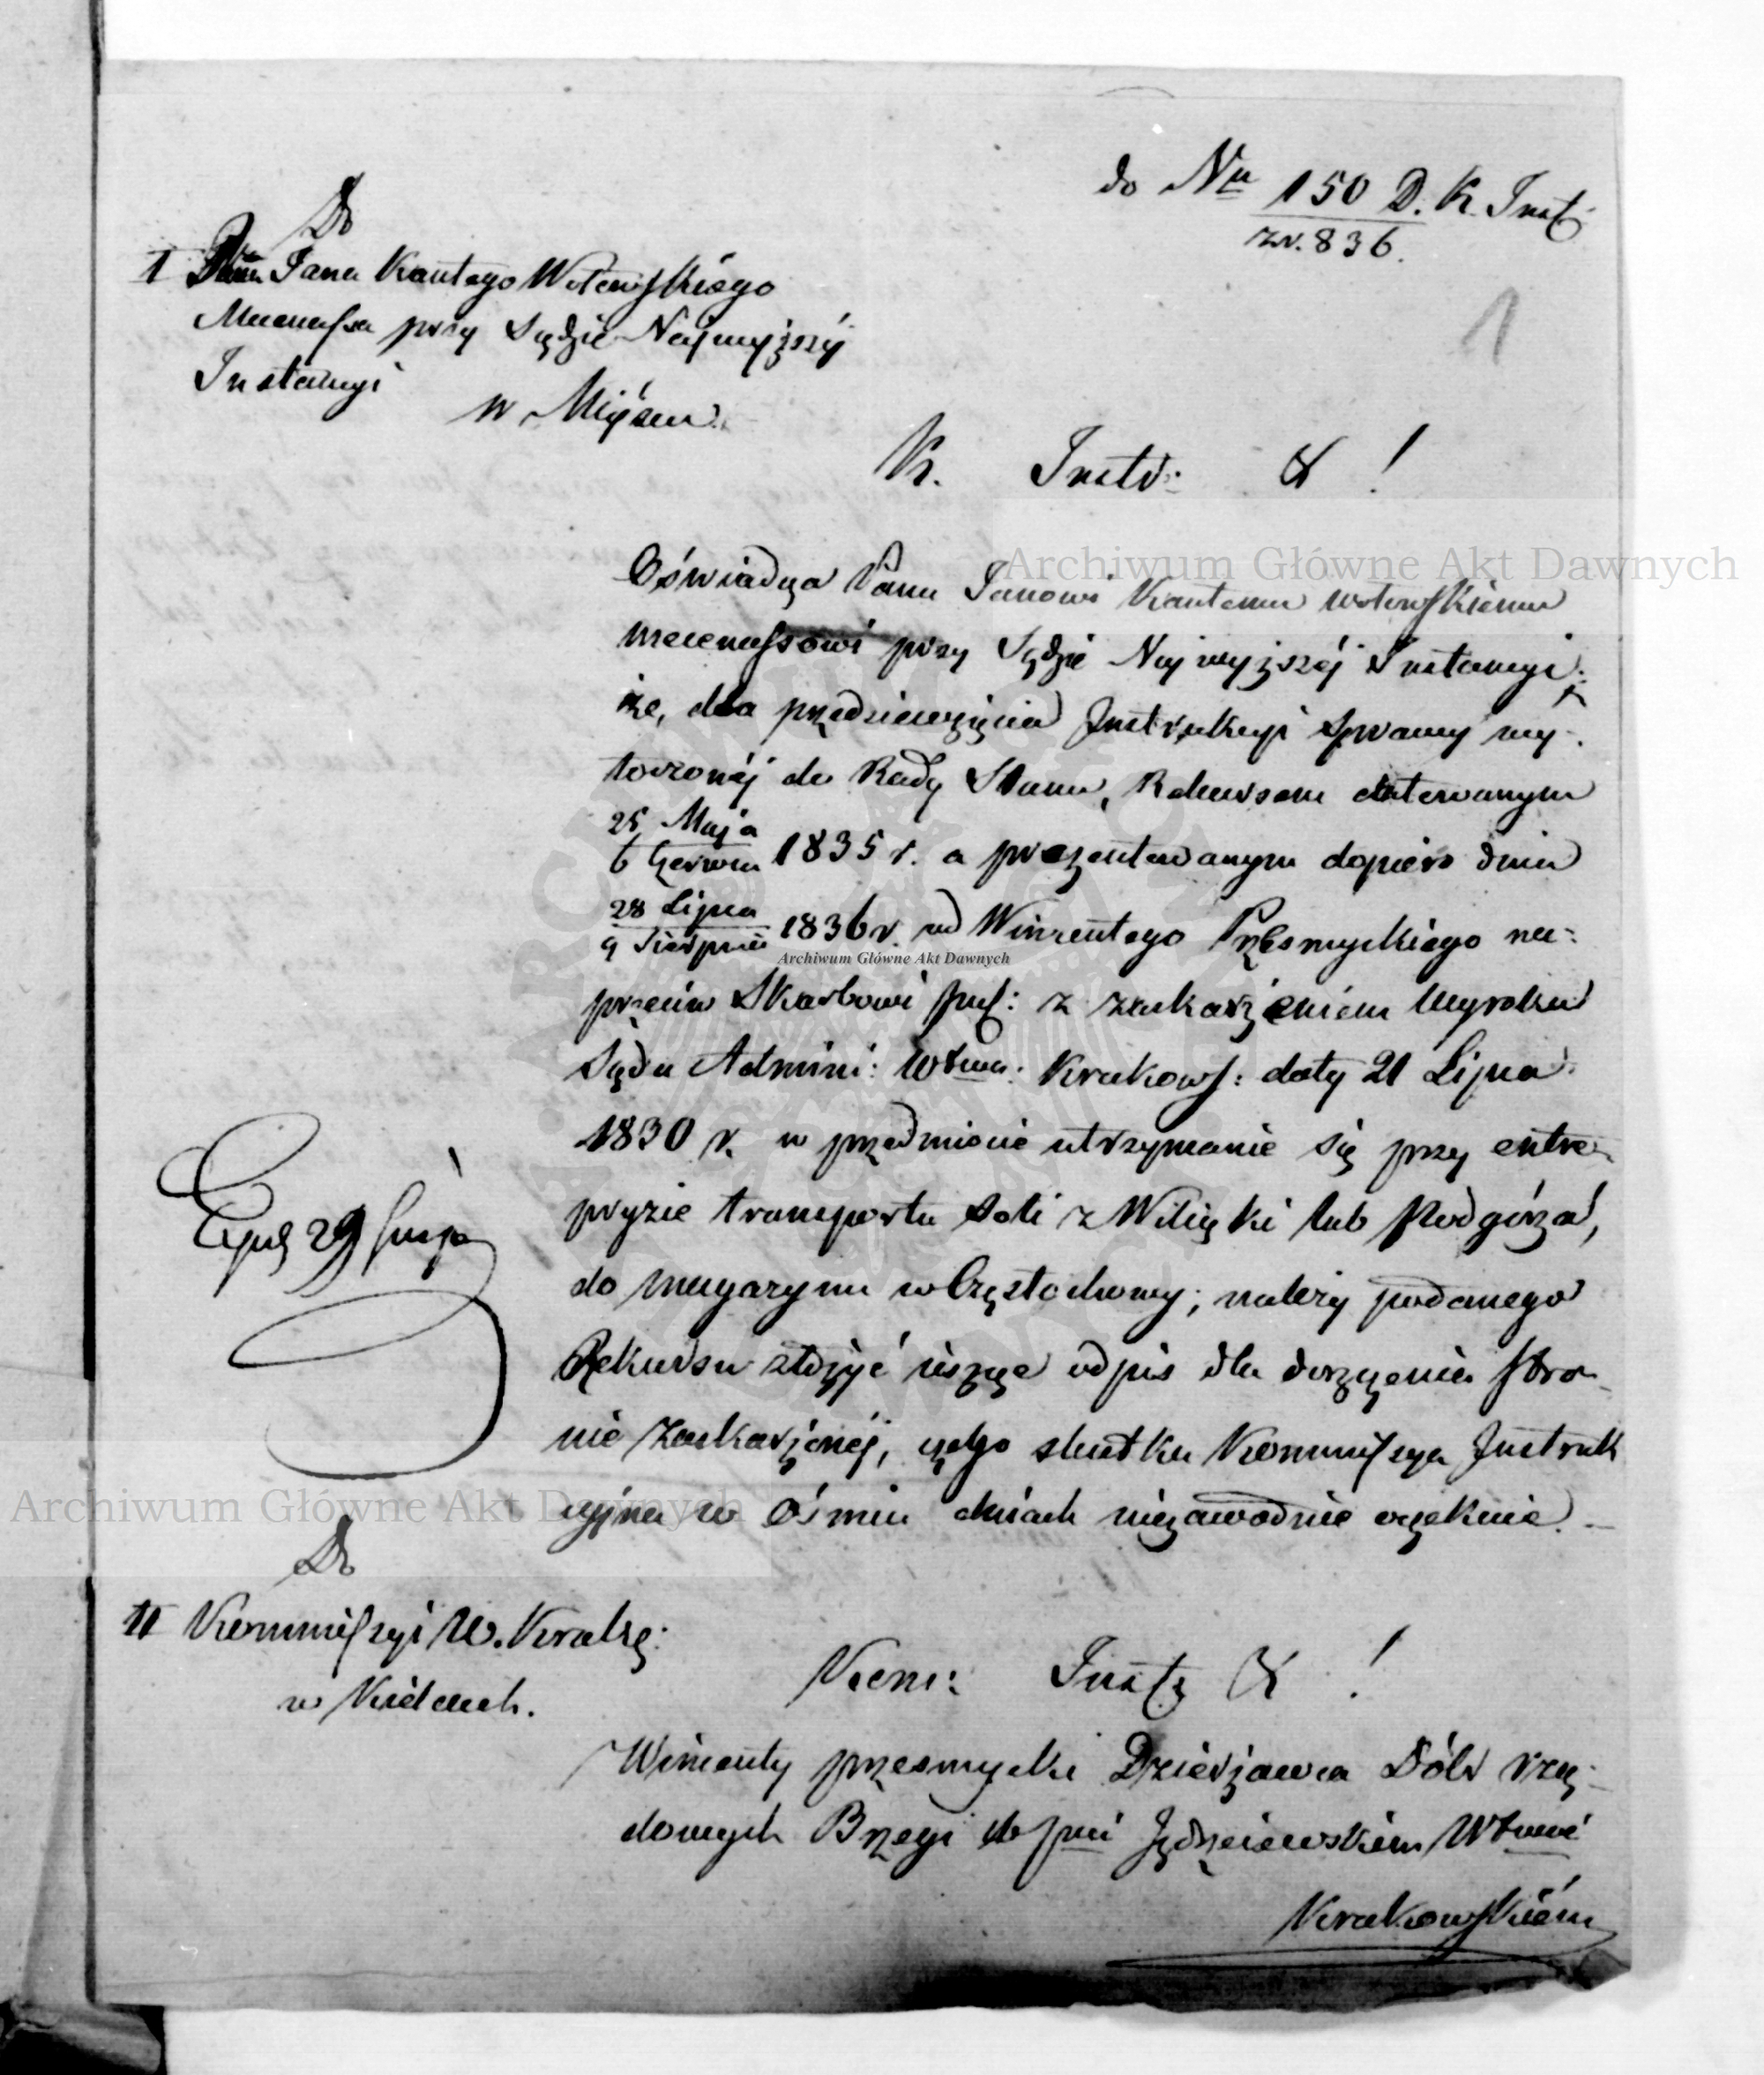 do Nru 150 D. K. Inst:
z r. 836.
1
Do
I Pana Jana Kantego Wołowskiego
Mecenassa przy Sądzie Najwyższéj
Instancyi
w Miejscu.
K. Instr: &!
Oświadcza Panu Janowi Kantemu Wołowskiemu
mecenassowi przy Sądzie Najwyższéj Instancyi;
że, dla przedsięwzięcia Instrukcyi Sprawy wy-
toczonéj do Rady Stanu, Rekursem datowanym
25 Maja
6 Czerwca 1835 r. a prezentowanym dopiero dnia
28 Lipca
9 Sierpnia 1836 r. od Wincentego Przesmyckiego na-
przeciw Skarbowi pub: z zaskarżeniem Wyroku
Sądu Admini: Wtwa: Krakows: daty 21 Lipca
1830 r. w przedmiocie utrzymanie się przy entre-
pryzie transportu soli z Wieliczki lub Podgórza,
do magazynu w Częstochowy; należy podanego
Rekursu złożyć jeszcze odpis dla doręczenia stro-
nie zaskarżonéj, czego skutku Kommissya Instruk
cyjna w ośmiu dniach niezawodnie oczekuie.
29
Do
II Kommissyi W. Krakow:
w Kielcach.
Kom: Inst: & !
Wincenty Przesmycki Dzierżawca Dóbr rzą-
dowych Brzegi w pcie Jędrzejewskiem Wtwie
Krakowskiém
Archiwum Główne Akt Dawnych
Archiwum Główne Akt Dawnych
Archiwum Główne Akt Dawnych